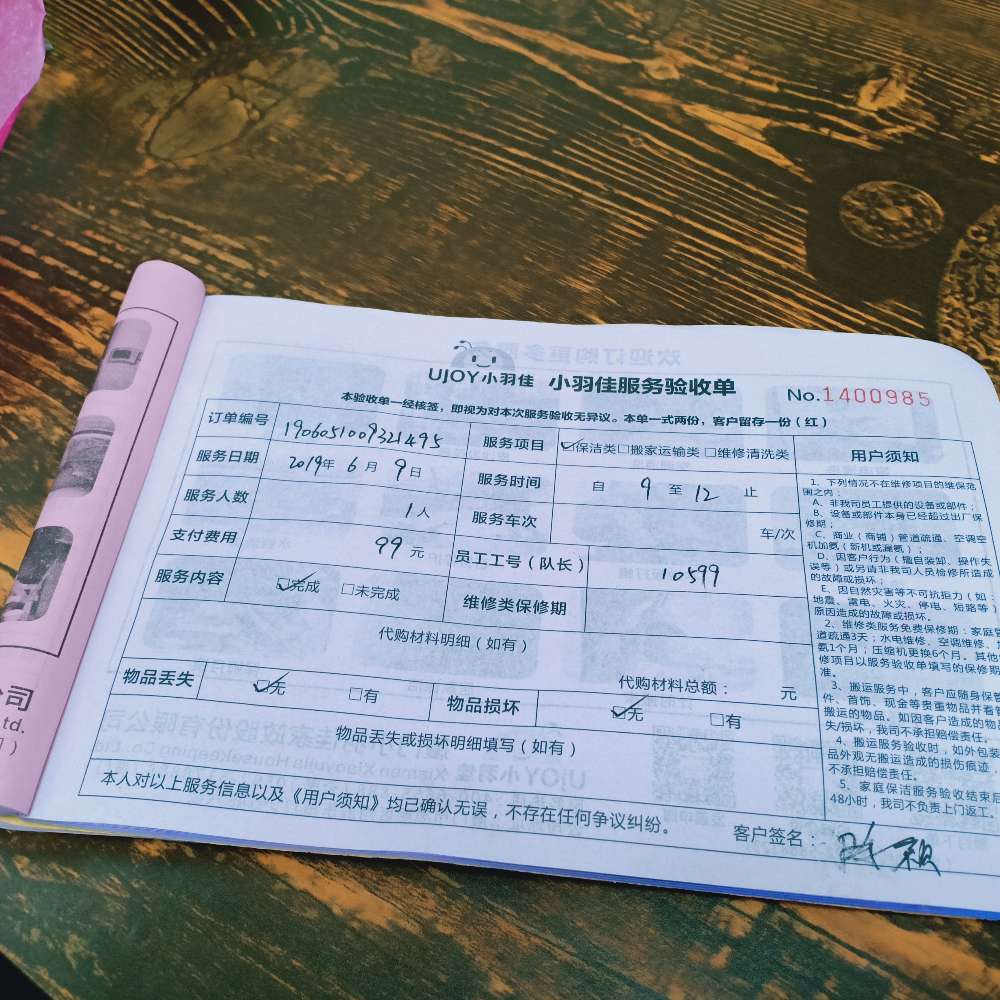 UJOY小羽佳 小羽佳服务验收单 No.1400985
本验收单一经核签，即视为对本次服务验收无异议。本单一式两份，客户留存一份（红）
订单编号 1906051009321495 服务项目 ☑保洁类□搬家运输类 □维修清洗类
服务日期 2019年 6 月 9 日 服务时间 自 9 至 12 止
服务人数 1人 服务车次 车/次
支付费用 99 元 员工工号（队长） 10599
服务内容 ☑完成 □未完成 维修类保修期
代购材料明细（如有）
代购材料总额： 元
物品丢失 ☑无 □有 物品损坏 ☑无 □有
物品丢失或损坏明细填写（如有）
本人对以上服务信息以及《用户须知》均已确认无误，不存在任何争议纠纷。
客户签名：
用户须知
1、下列情况不在维修项目的维保范
围之内：
A、非我司员工提供的设备或部件；
B、设备或部件本身已经超过出厂保
修期；
C、商业（商铺）管道疏通、空调空
机加氨（新机或漏氨）；
D、因客户行为（擅自装卸、操作失
误等）或另请非我司人员检修所造成
的故障或损坏；
E、因自然灾害等不可抗拒力（如：
地震、雷电、火灾、停电、短路等）
原因造成的故障或损坏。
2、维修类服务免费保修期：家庭管
道疏通3天；水电维修、空调维修、加
氨1个月；压缩机更换6个月。其他
修项目以服务验收单填写的保修期
准。
3、搬运服务中，客户应随身保管
件、首饰、现金等贵重物品并看管
搬运的物品。如因客户造成的物品
失/损坏，我司不承担赔偿责任。
4、搬运服务验收时，如外包装
品外观无搬运造成的损伤痕迹，
不承担赔偿责任。
5、家庭保洁服务验收结束后
48小时，我司不负责上门返工。
公司
td.